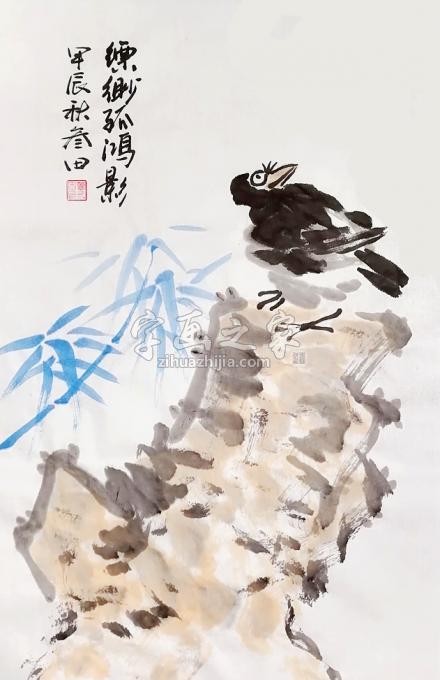 缥缈孤鸿影
甲辰秋叁田
字画之家
zihuazhijia.com